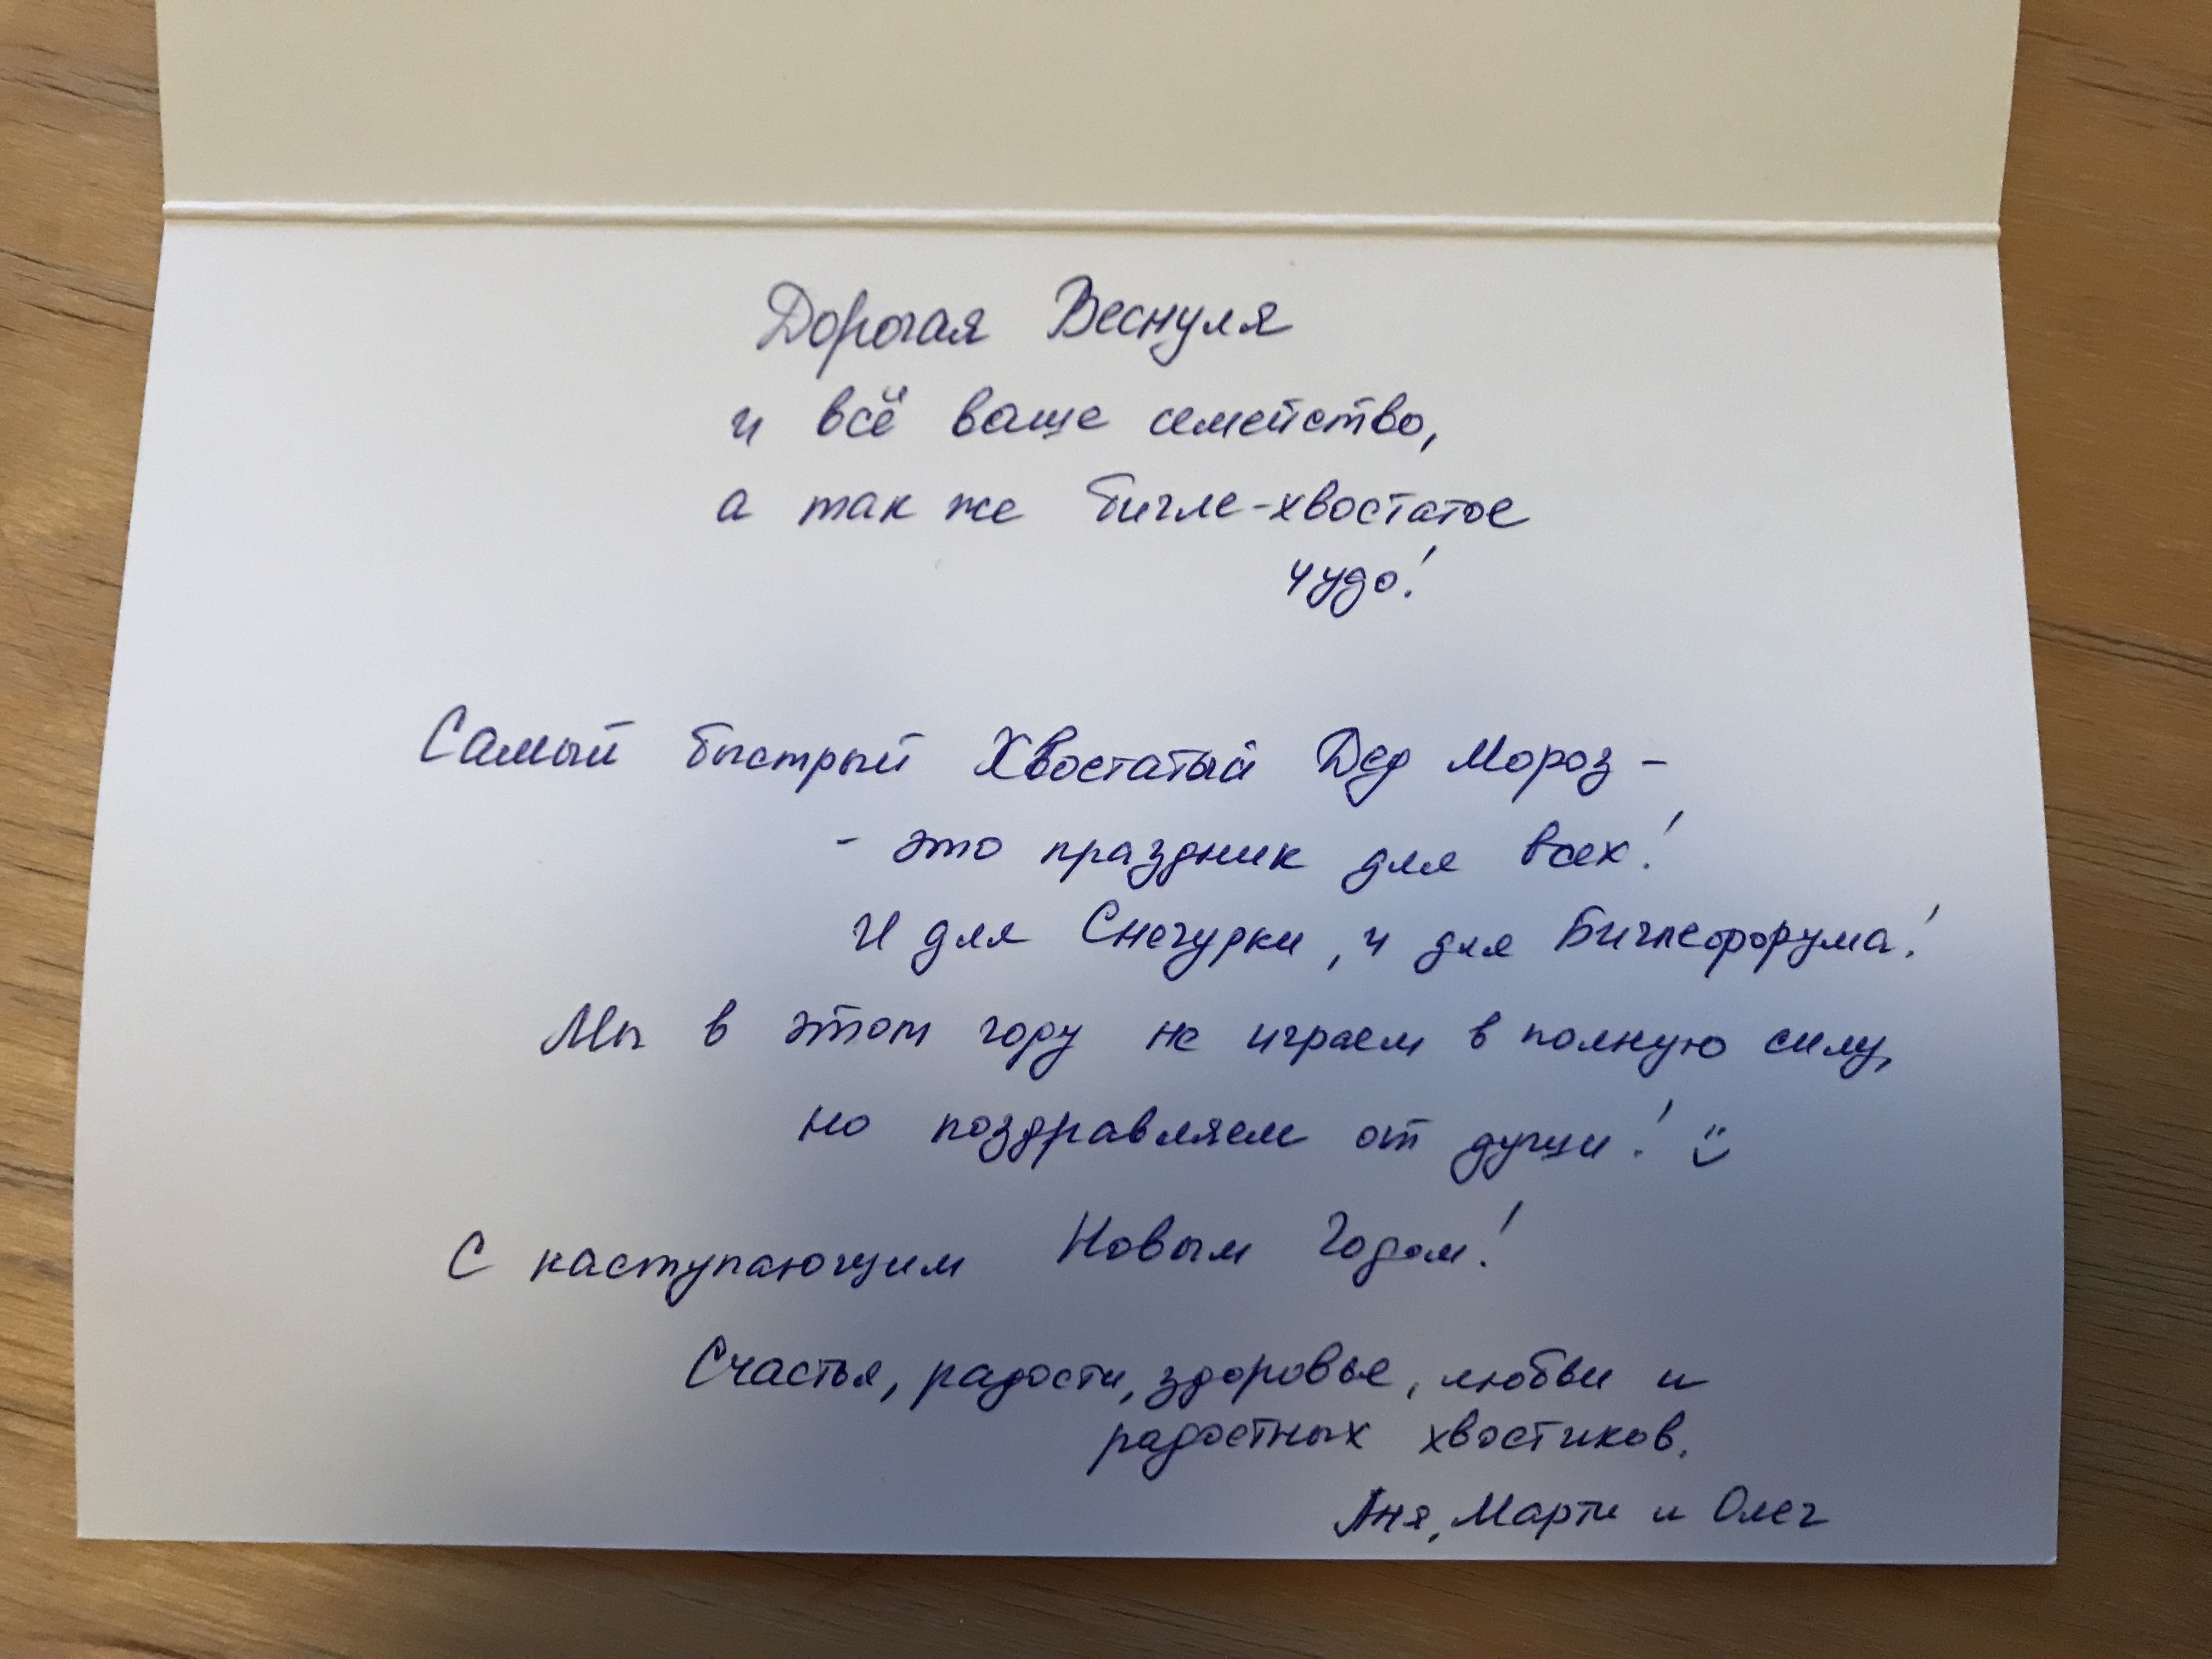 Дорогая Веснуля
и всё ваше семейство,
а так же бигле-хвостатое
чудо!
Самый быстрый Хвостатый Дед Мороз -
- это праздник для всех!
И для Снегурки, и для Биглефорума!
Мы в этом году не играем в полную силу,
но поздравляем от души! :)
С наступающим Новым Годом!
Счастья, радости, здоровье, любви и
радостных хвостиков.
Аня, Марти и Олег